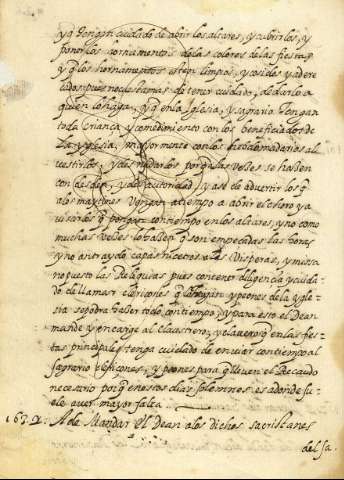 y q̃ tengan cuidado de abrir los altares, y cubrirlos, y
poner los ornamentos de las colores de las fiestas
y q̃ los hornamentos esten limpios, y cosidos y adere
cados pues no es de tener cuidado, de darlo a
quien los haga, y q̃ en la Iglesia, y sagrario tengan
toda crianca y comedimiento con los beneficiados de
la yglesia, mayormente con los hebdomadarios al
vestirlos, y desnudarlos porque a las veces se hacen
con desden, y autoridad, y ase de advertir los q̃
a los maytines vengan a tiempo a abrir el choro y a
con tiempo en los altares, y no como
muchas veces lo hacen q̃ son empecadas las horas
y no an traydo capas ni cetros a las Visperas, y missa
ni puesto las Reliquias pues con tener diligencia y cuida
do de llamar clericones q̃ y peones de la ygle
sia se podra hacer todo con tiempo, y para esto el Dean
mande y encargue al claustrero, y clavero q̃ en las fies
tas principales tenga cuidado de enviar con tiempo al
sagrario clericones, y peones para q̃ lleven el Recaudo
necesario porq̃ en estos dias solemnes es adonde su
ele aver mayor falta
163 A de Mandar el Dean a los dichos sacristanes
del sa.